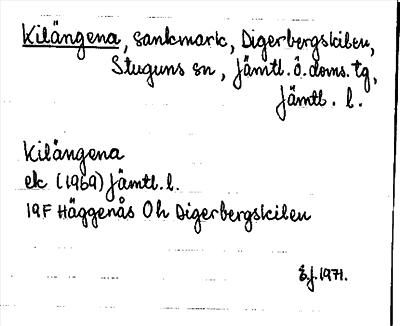 Kilängena, sankmark, Digerbergskilen,
Stuguns sn, Jämtl. ö. doms. tg,
Jämtl. l.
Kilängena
ek (1969) Jämtl. l.
19F Häggenås 0h Digerbergskilen
E.J. 1971.